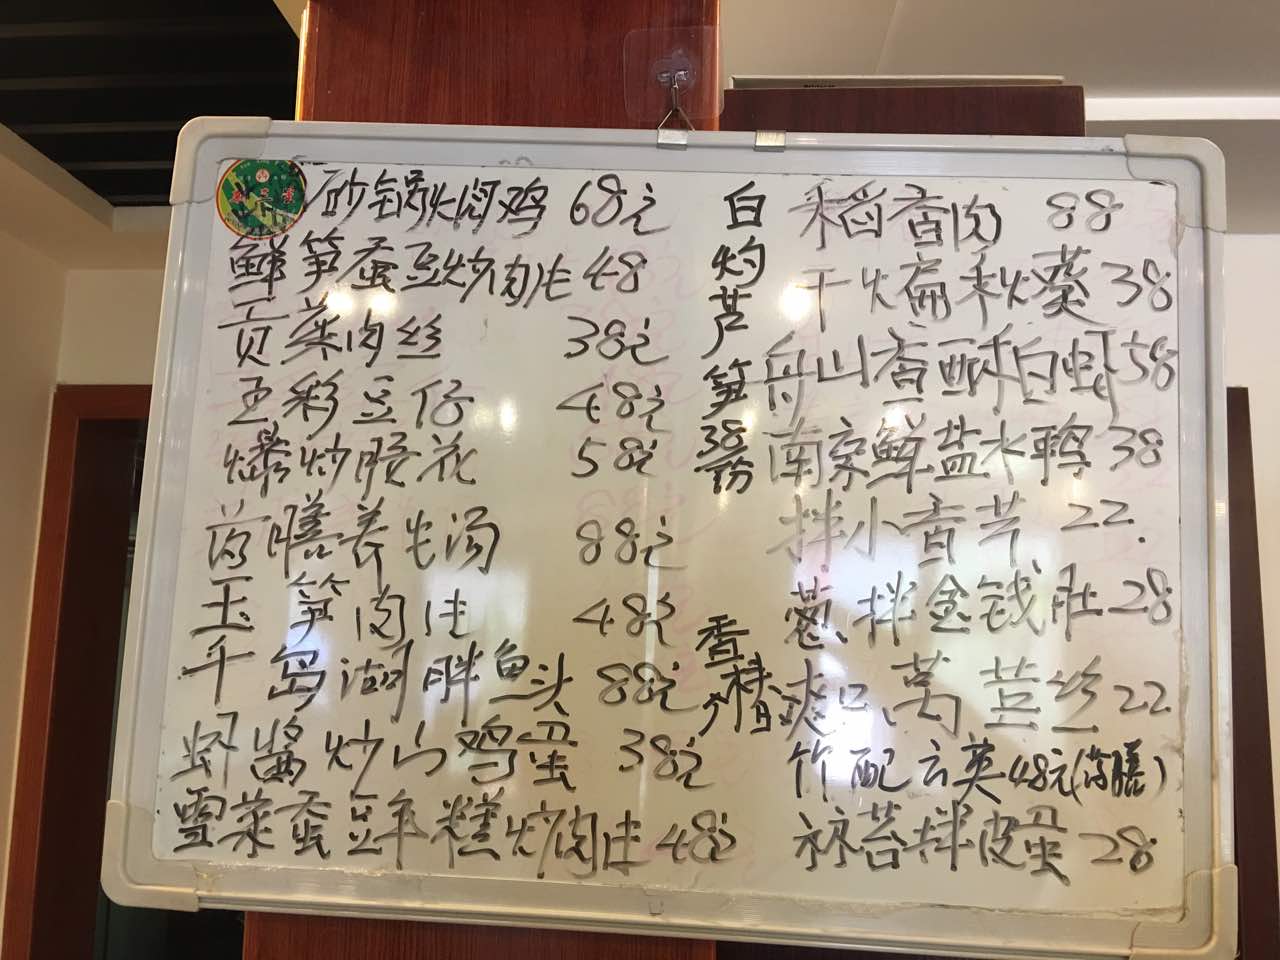 砂锅焖鸡 68元
鲜笋蚕豆炒肉片 48
贡菜肉丝 38元
五彩豆仔 48元
爆炒腰花 58元
药膳养生汤 88元
玉笋肉片 48元
千岛湖胖鱼头 88元
虾酱炒山鸡蛋 38元
雪菜蚕豆年糕炒肉片 48元
白灼芦笋 38元/份
香椿
稻香肉 88
干煸秋葵 38
舟山香酥白虾 58
南京鲜盐水鸭 38
拌小香芹 22.
葱拌金钱肚 28
爽口莴苣丝 22
竹配云英 48元(药膳)
苔拌皮蛋 28